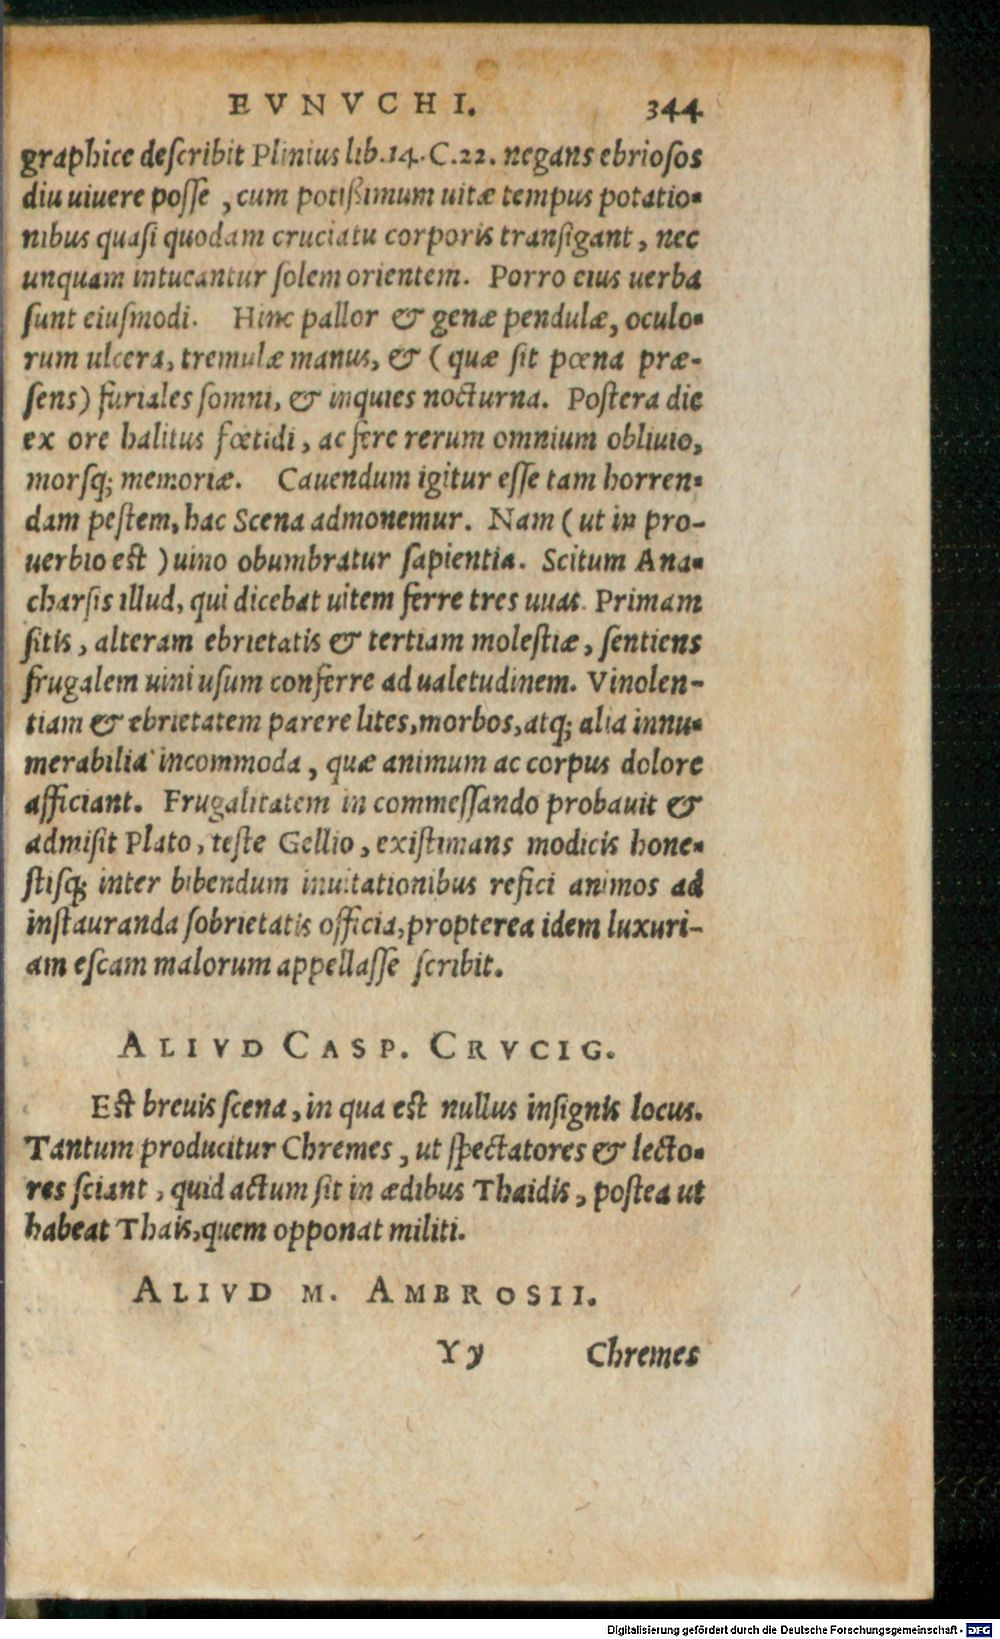 EVNVCHI. 344
graphice deſcribit Plinius lib.14.C.22. negans ebrioſos
diu uiuere poſſe , cum potiſsimum uitæ tempus potatio-
nibus quaſi quodam cruciatu corporis tranſigant , nec
unquam intueantur ſolem orientem. Porro eius uerba
ſunt eiuſmodi. Hinc pallor & genæ pendulæ, oculo-
rum ulcera, tremulæ manus, & ( quæ ſit pœna præ-
ſens) furiales ſomni, & inquies nocturna. Poſtera die
ex ore halitus fœtidi , ac fere rerum omnium obliuio,
morſq; memoriæ. Cauendum igitur eſſe tam horren-
dam peſtem, hac Scena admonemur. Nam ( ut in pro-
uerbio est ) uino obumbratur ſapientia. Scitum Ana-
charſis illud, qui dicebat uitem ferre tres uuas. Primam
ſitis , alteram ebrietatis & tertiam moleſtiæ , ſentiens
frugalem uini uſum conferre ad ualetudinem. Vinolen-
tiam & ebrietatem parere lites, morbos, atq; alia innu-
merabilia incommoda , quæ animum ac corpus dolore
afficiant. Frugalitatem in commeſſando probauit &
admiſit Plato , teſte Gellio , exiſtimans modicis hone-
ſtiſq; inter bibendum inuitationibus refici animos ad
inſtauranda ſobrietatis officia, propterea idem luxuri-
am eſcam malorum appellaſſe ſcribit.
ALIVD CASP. CRVCIG.
Est breuis ſcena , in qua est nullus inſignis locus.
Tantum producitur Chremes , ut ſpectatores & lecto-
res ſciant , quid actum ſit in ædibus Thaidis , poſtea ut
habeat Thais, quem opponat militi.
ALIVD M. AMBROSII.
Yy Chremes
Digitalisierung gefördert durch die Deutsche Forschungsgemeinschaft - DFG